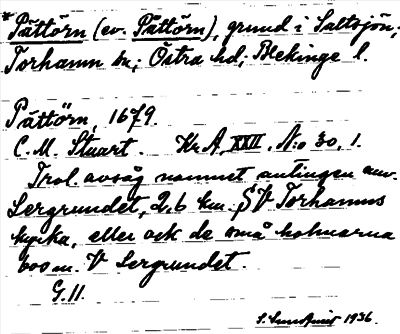 * Påttörn (ev. Pättörn), grund i Saltsjön;
Torhamn sn; Östra hd; Blekinge l.
Påttörn, 1679.
C. M. Stuart. Kr.A, XXII, N:o 30, 1.
Trol. avsåg namnet antingen nuv.
Sergrundet, 2,6 km. SV Torhamns
kyrka, eller ock de små holmarna
600 m. V Sergrundet.
G. 11.
S. Sundquist 1936.